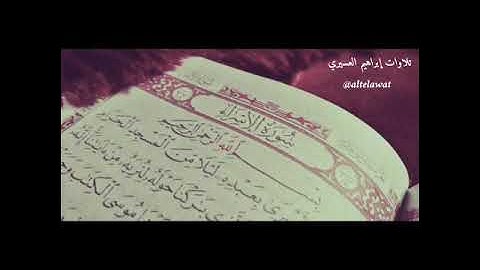 تلاوات إبراهيم العسيري
@altelawat
سُورَةُ الإِسْرَاءِ
بِسْمِ اللَّهِ الرَّحْمَٰنِ الرَّحِيمِ
بِعَبْدِهِ لَيْلًا مِّنَ الْمَسْجِدِ الْحَرَامِ
بَارَكْنَا حَوْلَهُ لِنُرِيَهُ مِنْ آيَاتِنَا إِنَّهُ
مُوسَى الْكِتَابَ